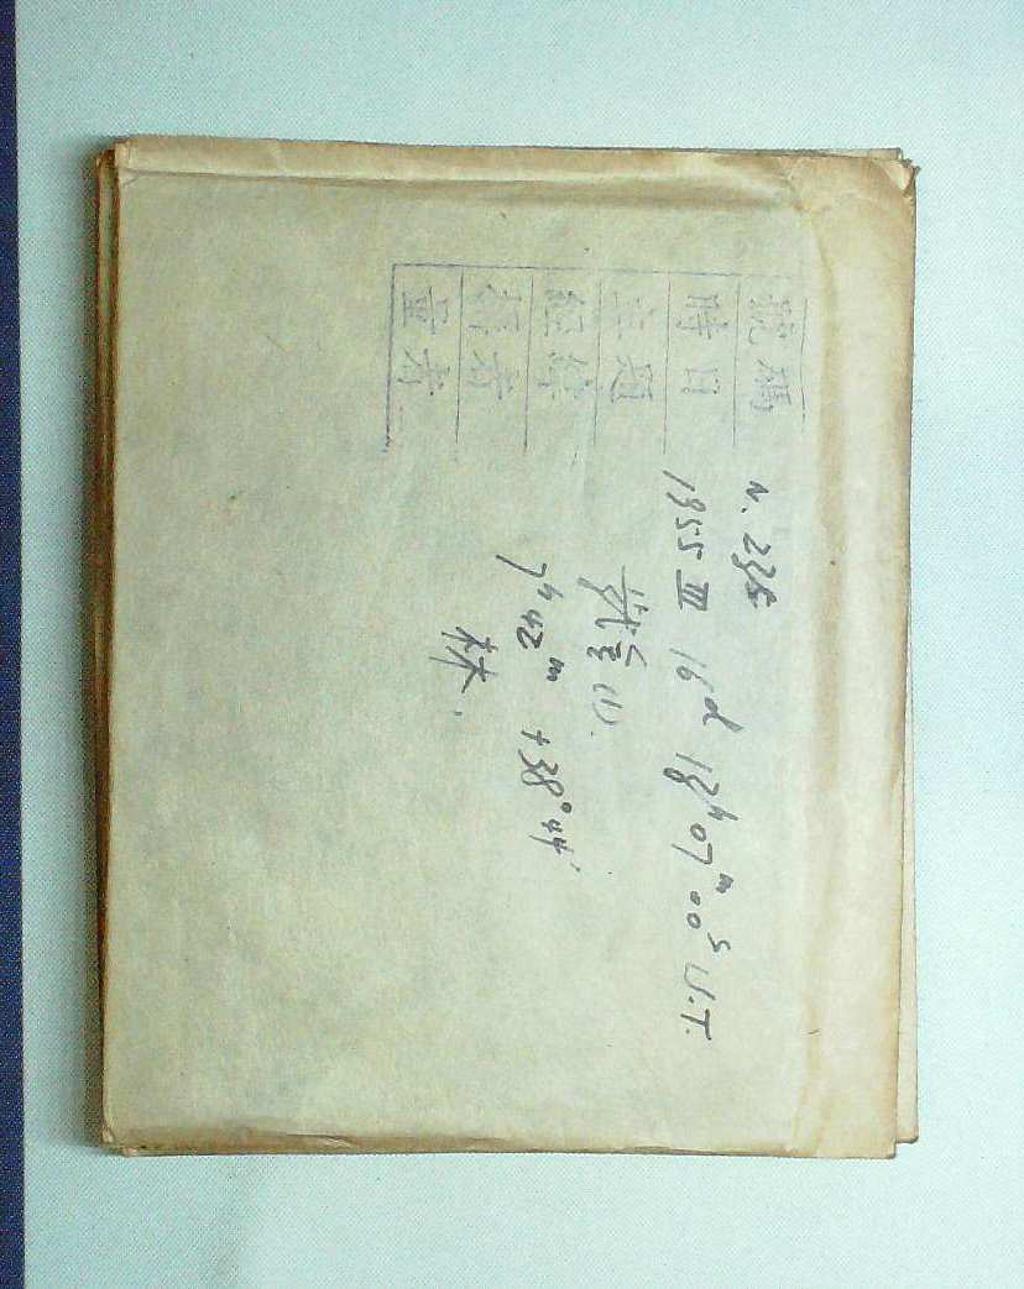 號碼 N.
時日 1955 III 16d 18h 07m 00s U.T.
主題 星 (1).
經緯 7h 42m +38° 44'
攝者 林.
量者